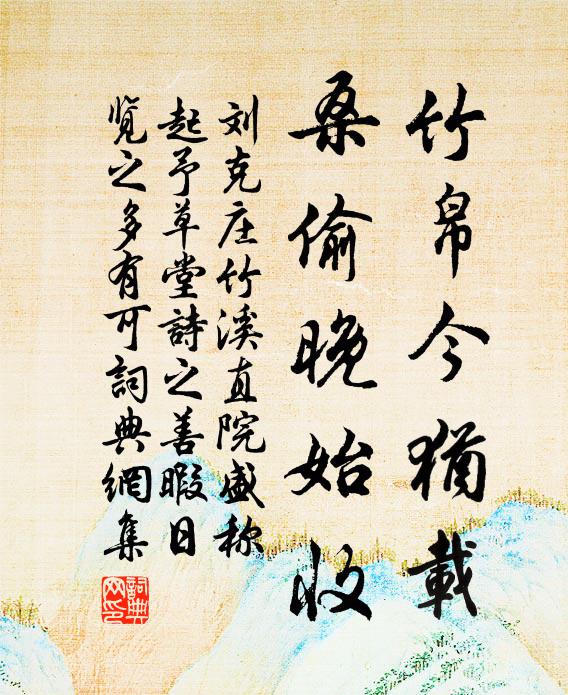 竹帛今猶載
桑偷晚始收
刘克庄竹溪直院盛称
起予草堂詩之善暇日
览之多有可詞典網集
詞典
网印